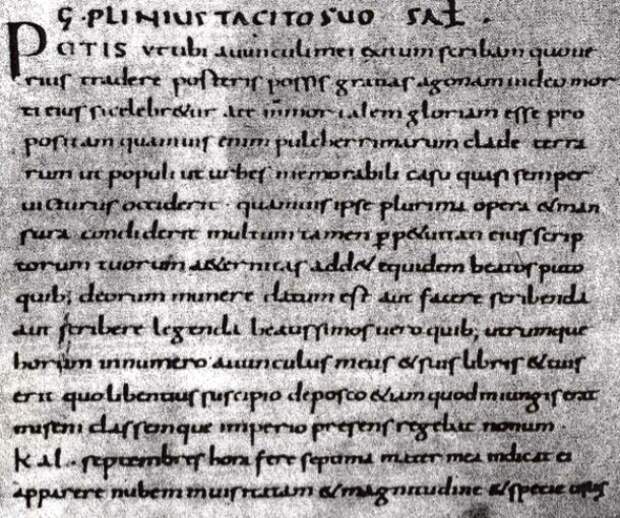 G · PLINIUS TACITO SUO SAL̅ .
PETIS ut tibi avunculi mei exitum scribam quo ve
rius tradere posteris possis gratias ago nam indeo mor
ti eius si celebretur a te inmortalem gloriam esse pro
positam quamuis enim pulcherrimarum clade terra
rum ut populi ut urbes memorabili casu quasi semper
uicturus occiderit · quamuis ipse plurima opera et man
sura condiderit multum tamen ꝑpetuitati eius scrip
torum tuorum aeternitas addet equidem beatos puto
quib; deorum munere datum est aut facere scribenda
aut scribere legenda beatissimos uero quib; utrumque
horum in numero auunculus meus et suis libris et tuis
erit quo libentius suscipio deposco etiam quod iniungis erat
miseni classemque imperio presens regebat nonum ·
kal · septembres hora fere septima mater mea indicat ei
apparere nubem inusitatam et magnitudine et specie